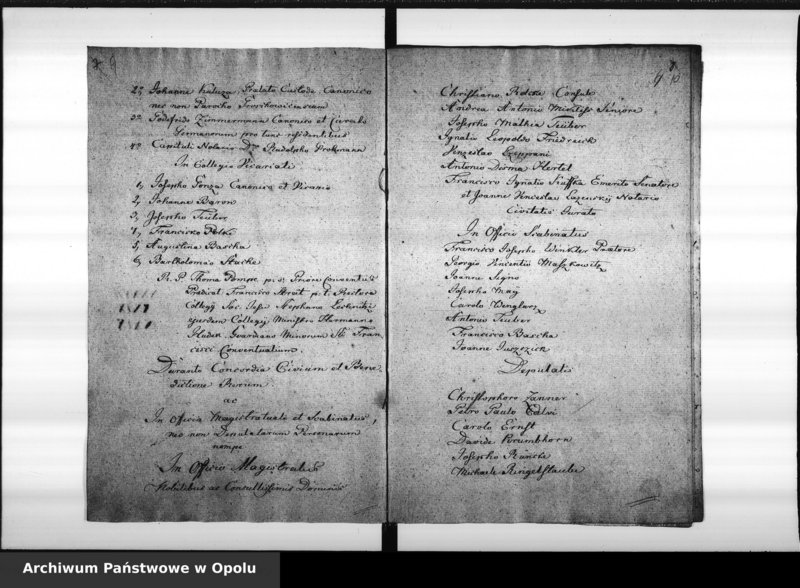 2do Johanne Haluza, Prælato Custode Canonico
nec non Parocho
3tio Godefrido Zimmermann Canonico et Curato
Germanorum pro tunc residentibus
4to Capituli Notario Dno Rudolpho Brokmann
In Collegio Vicariali
1, Josepho Gonza Canonico et Vicario
2, Johanne Baron
3, Josepho Teüber
4, Francisco Polke
5, Augustino Bascha
6, Bartholomæo Stuche
R. P. Thoma Pompe, p: t: Priore Conventus
Prædicat. Francisco Stroit p: t: Rectore
Collegÿ Soc. Jesu Stephano
ejusdem Collegÿ Ministro Hermanno
Hudek, Gvardiano Minorum Sti Fran-
cisci Conventualium.
Durante Concordia Civium et Bene
dictione Rerum.
ac
In Officio Magistratuali et Scabinatus,
nec non Deputatarum Personarum
nempe
In Officio Magistratus
Nobilibus ac Consultissimis Dominis
9
Christiano Polcke Consule
Andrea Antonio Seniore
Josepho Mathia Teüber
Ignatio Leopoldo Friedreich
Venzeslao Czeppani
Antonio Disma Hertel
Francisco Ignatio Emerito Senatore
et Joanne Venceslao Notario
Civitatis Jurato
In Officio Scabinatus
Francisco Josepho Winkler Prætore
Georgio Vincentio
Joanne Segno
Josepho Maÿ
Carolo
Antonio Teüber
Francisco Bascha
Joanne Juszczick
Deputatis
Christophoro Zanner
Petro Paulo Calvi
Carolo Ernst
Davide Krumbhorn
Josepho
Michaele
Archiwum Państwowe w Opolu